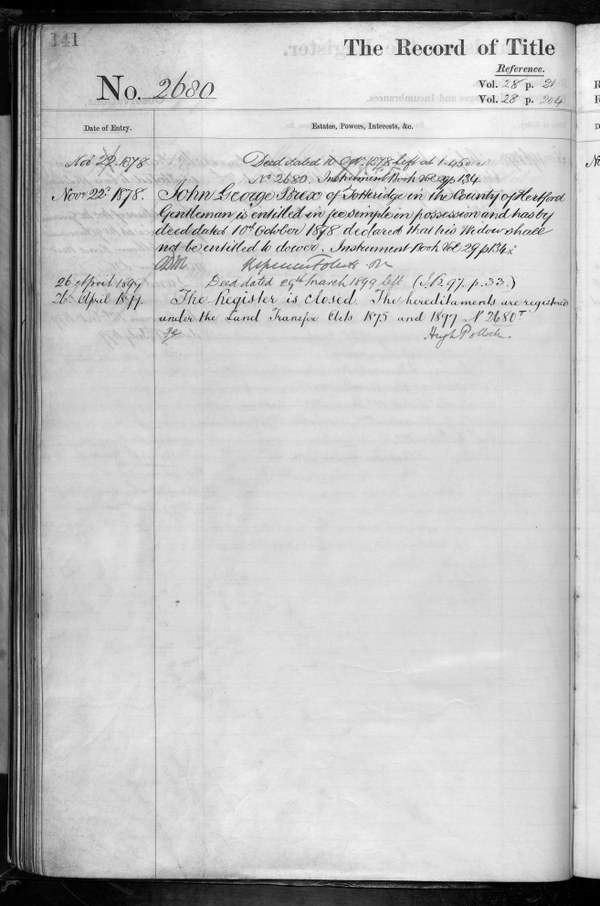 141
The Record of Title
Reference.
No. 2680
Vol. 28 p. 21
Vol. 28 p. 204
Date of Entry.
Estates, Powers, Interests, &c.
Nov 22 1878
Deed dated 10 Oct 1878 left at 1.45
No 2680. Instrument Book Vol 29 p 134
Novr. 22d. 1878.
John George of Totteridge in the County of Hertford
Gentleman is entitled in fee simple in possession and has by
deed dated 10th October 1878 declared that his Widow shall
not be entitled to dower. Instrument Book Vol. 29 p 134.
26 April 1899
Deed dated 29th March 1899 left (I.B. 97. p. 33.)
26 April 1899.
The Register is closed. The hereditaments are registered
under the Land Transfer Acts 1875 and 1897 No 2680T
Hugh Pollock.